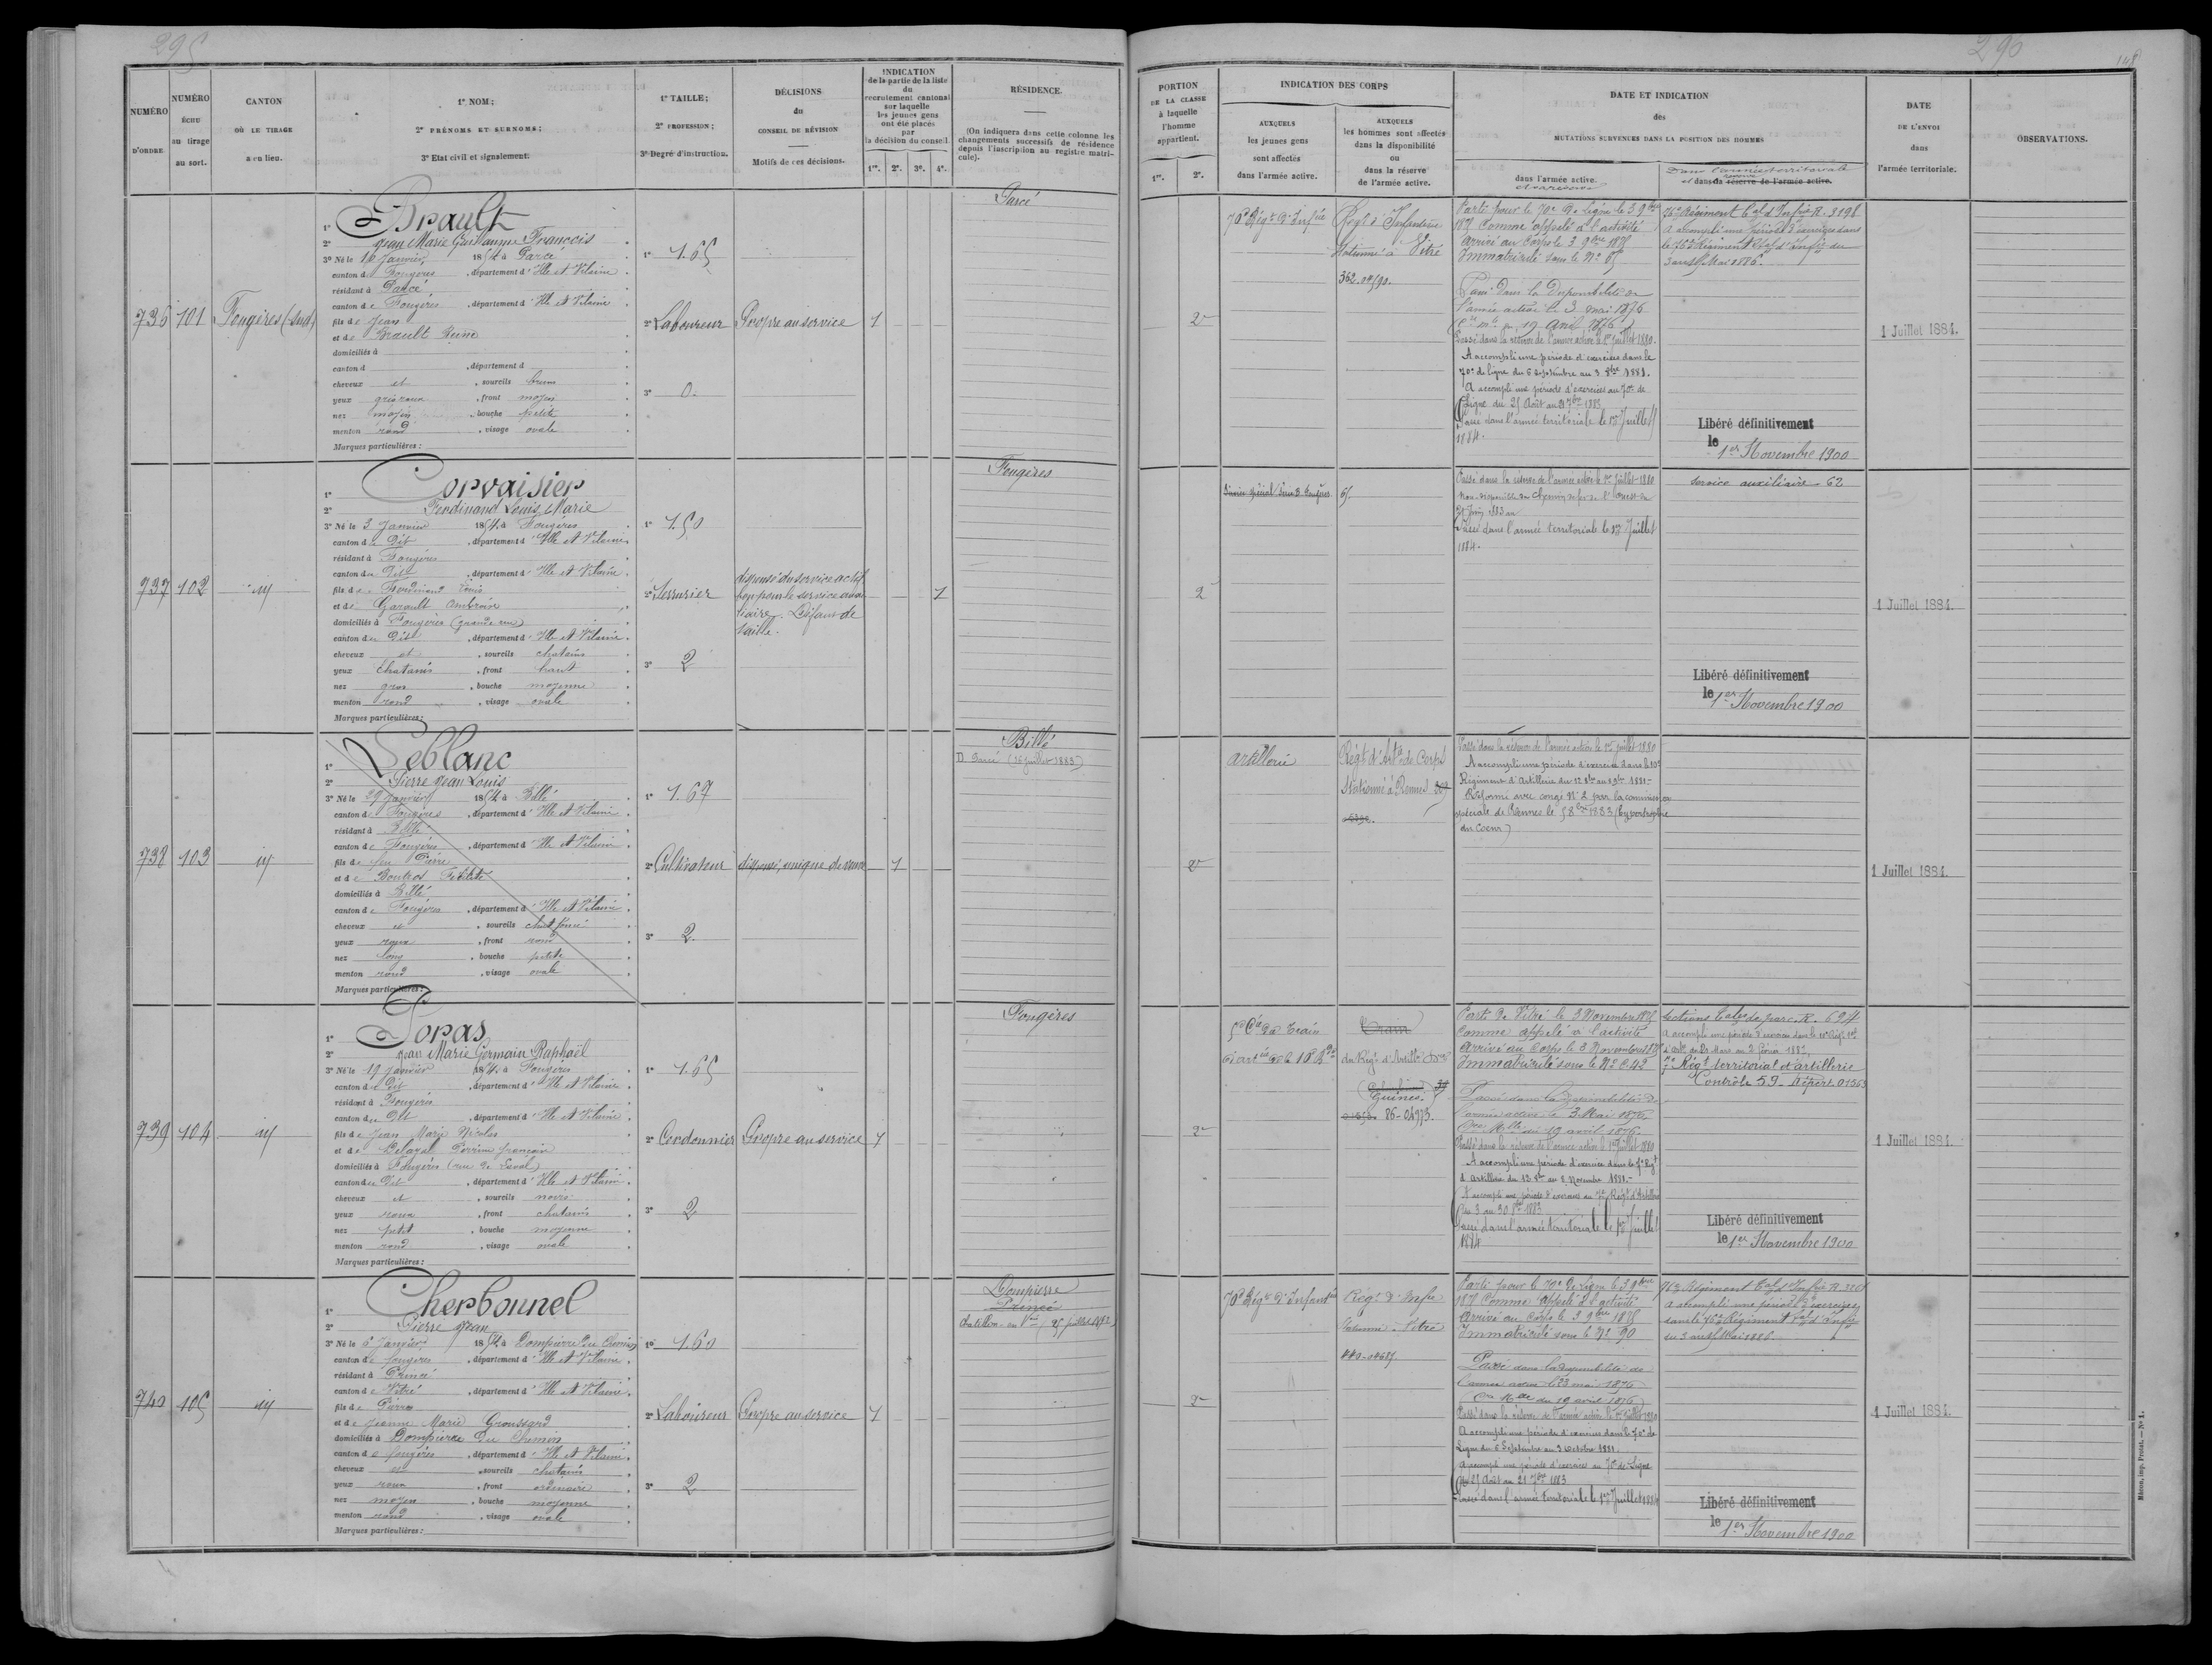 295
NUMÉRO D'ORDRE.
NUMÉRO ÉCHU au tirage au sort.
CANTON OÙ LE TIRAGE a eu lieu.
1º NOM;
2º PRÉNOMS ET SURNOMS;
3º Etat civil et signalement.
1º TAILLE;
2º PROFESSION;
3º Degré d'instruction.
DÉCISIONS du CONSEIL DE RÉVISION
Motifs de ces décisions.
INDICATION
de la partie de la liste
du
recrutement cantonal
sur laquelle
les jeunes gens
ont été placés
par
la décision du conseil
1re. 2e. 3e. 4e.
RÉSIDENCE.
(On indiquera dans cette colonne les
changements successifs de résidence
depuis l'inscription au registre matri-
cule).
736 101 Fougères (sud)
1º Brault
2º Jean Marie Guillaume François
3º Né le 16 Janvier 1854 à Parcé
canton de Fougères, département d'Ille et Vilaine
résidant à Parcé
canton de Fougères, département d'Ille et Vilaine
fils de Jean
et de Brault Reine
domiciliés à
canton d , département d
cheveux et , sourcils bruns
yeux gris roux , front moyen
nez moyen , bouche petite
menton rond , visage ovale
Marques particulières:
1º 1.65
2º Laboureur
3º 0.
Propre au service
1
Parcé
737 102 id
1º Corvaisier
2º Ferdinand Louis Marie
3º Né le 3 Janvier 1854 à Fougères
canton du Dit , département d'Ille et Vilaine
résidant à Fougères
canton du Dit , département d'Ille et Vilaine
fils de Ferdinand Louis
et de Garault Ambroise
domiciliés à Fougères (grande rue)
canton du Dit , département d'Ille et Vilaine
cheveux et , sourcils chatains
yeux chatains , front haut
nez gros , bouche moyenne
menton rond , visage ovale
Marques particulières:
1º 1.50
2º Serrurier
3º 2
dispensé du service actif
bon pour le service auxi
liaire. Défaut de
taille.
1
Fougères
738 103 id
1º Leblanc
2º Pierre Jean Louis
3º Né le 29 Janvier 1854 à Billé
canton de Fougères , département d'Ille et Vilaine
résidant à Billé
canton de Fougères , département d'Ille et Vilaine
fils de feu Pierre
et de Boutros
domiciliés à Billé
canton de Fougères , département d'Ille et Vilaine
cheveux et , sourcils chat foncé
yeux roux , front rond
nez long , bouche petite
menton rond , visage ovale
Marques particulières:
1º 1.67
2º Cultivateur
3º 2
dispensé, unique de veuve
1
Billé
D. Parcé (16 juillet 1883)
739 104 id
1º Poras
2º Jean Marie Germain Raphaël
3º Né le 19 Janvier 1854 à Fougères
canton du Dit , département d'Ille et Vilaine
résidant à Fougères
canton du Dit , département d'Ille et Vilaine
fils de Jean Marie Nicolas
et de Delaval Perrine françoise
domiciliés à Fougères (rue de Laval)
canton du Dit , département d'Ille et Vilaine
cheveux et , sourcils noirs
yeux roux , front chatains
nez petit , bouche moyenne
menton rond , visage ovale
Marques particulières:
1º 1.65
2º Cordonnier
3º 2
Propre au service
1
Fougères
740 105 id
1º Cherbonnel
2º Pierre Jean
3º Né le 6 Janvier 1854 à Dompierre du Chemin
canton de fougères , département d'Ille et Vilaine
résidant à Princé
canton de Vitré , département d'Ille et Vilaine
fils de Pierre
et de Jeanne Marie Groussard
domiciliés à Dompierre du Chemin
canton de fougères , département d'Ille et Vilaine
cheveux et , sourcils chatains
yeux roux , front ordinaire
nez moyen , bouche moyenne
menton rond , visage ovale
Marques particulières:
1º 1.60
2º Laboureur
3º 2
Propre au service
1
Dompierre
Princé
Chatillon en V
296
148
PORTION DE LA CLASSE à laquelle l'homme appartient.
1re. 2e.
INDICATION DES CORPS
AUXQUELS les jeunes gens sont affectés dans l'armée active.
AUXQUELS les hommes sont affectés dans la disponibilité ou dans la réserve de l'armée active.
DATE ET INDICATION
des
MUTATIONS SURVENUES DANS LA POSITION DES HOMMES
dans l'armée active.
et réserve
Dans l'armée territoriale
et dans la réserve de l'armée active.
DATE DE L'ENVOI dans l'armée territoriale.
OBSERVATIONS.
2e
70e Régt d'Infie
Régt d'Infanterie
stationné à Vitré
362.
Parti pour le 70e de Ligne le 3 9bre
1875 Comme appelé à l'activité
Arrivé au Corps le 3 9bre 1875
Immatriculé sous le Nº 65
Passé dans la Disponibilité de
l'armée active le 3 mai 1876
19 Avril 1876
Passé dans la réserve de l'armée active le 1er Juillet 1880.
A accompli une période d'exercices dans le
70e de ligne du 6 septembre au 3 8bre 1881.
A accompli une période d'exercices au 70e de
Ligne du 25 Août au 21 7bre 1883
Passé dans l'armée territoriale le 1er Juillet
1884.
76e Régiment Tal d'Infie R. 3198
A accompli une période d'exercices dans
le 76e Régiment Tal d'Infie du
3 au 15 Mai 1886.
Libéré définitivement
le 1er Novembre 1900
1 Juillet 1884.
2
65
Passé dans la réserve de l'armée active le 1er Juillet 1880
Non-disponible du Chemin de fer de l'Ouest
Passé dans l'armée territoriale le 1er Juillet
1884.
Service auxiliaire 62
Libéré définitivement
le 1er Novembre 1900
1 Juillet 1884.
2e
Artillerie
Régt d'Artie de Corps
Stationné à Rennes
Passé dans la réserve de l'armée active le 1er Juillet 1880
A accompli une période d'exercice dans le 10e
Régiment d'Artillerie 1881
Réformé avec congé Nº 2 par la commission
spéciale de Rennes le 1883 (hypertrophie
du Coeur)
1 Juillet 1884.
2e
5e Cie du Train
du Régt d'Artillie
Guines.
26-04973.
Parti de Vitré le 3 Novembre 1875
Comme appelé à l'activité
Arrivé au Corps le 3 Novembre 1875
Immatriculé sous le Nº C.42
Passé dans la disponibilité de
l'armée active le 3 Mai 1876
19 avril 1876
Passé dans la réserve de l'armée active le 1er Juillet 1880
A accompli une période d'exercice dans le 7e Régt
d'Artillerie du 13 8bre au 8 Novembre 1881.
A accompli une période d'exercices au 7e Régt d'Artillerie
du 3 au 30 8bre 1883
Passé dans l'armée territoriale le 1er Juillet
1884
Sections Tales de parc. R. 624
Régt territorial d'artillerie
Contrôle 59
Libéré définitivement
le 1er Novembre 1900
1 Juillet 1884.
2e
70e Régt d'Infantie
Régt d'Infie
stationné Vitré
440-04685.
Parti pour le 70e de Ligne le 3 9bre
1875 Comme appelé à l'activité
Arrivé au Corps le 3 9bre 1875
Immatriculé sous le Nº 90
Passé dans la disponibilité de
l'armée active le 3 mai 1876
du 19 avril 1876
Passé dans la réserve de l'armée active le 1er Juillet 1880
A accompli une période d'exercices dans le 70e de
Ligne du 6 Septembre au 3 Octobre 1881.
A accompli une période d'exercices au 70e de Ligne
du 25 Août au 21 7bre 1883
Passé dans l'armée territoriale le 1er Juillet 1884
76e Régiment Tal d'Infie R.
A accompli une période d'exercices
dans le 76e Régiment Tal d'Infie
du 3 au 15 Mai 1886
Libéré définitivement
le 1er Novembre 1900
1 Juillet 1884.
Mâcon, imp. Protat. — Nº 1.